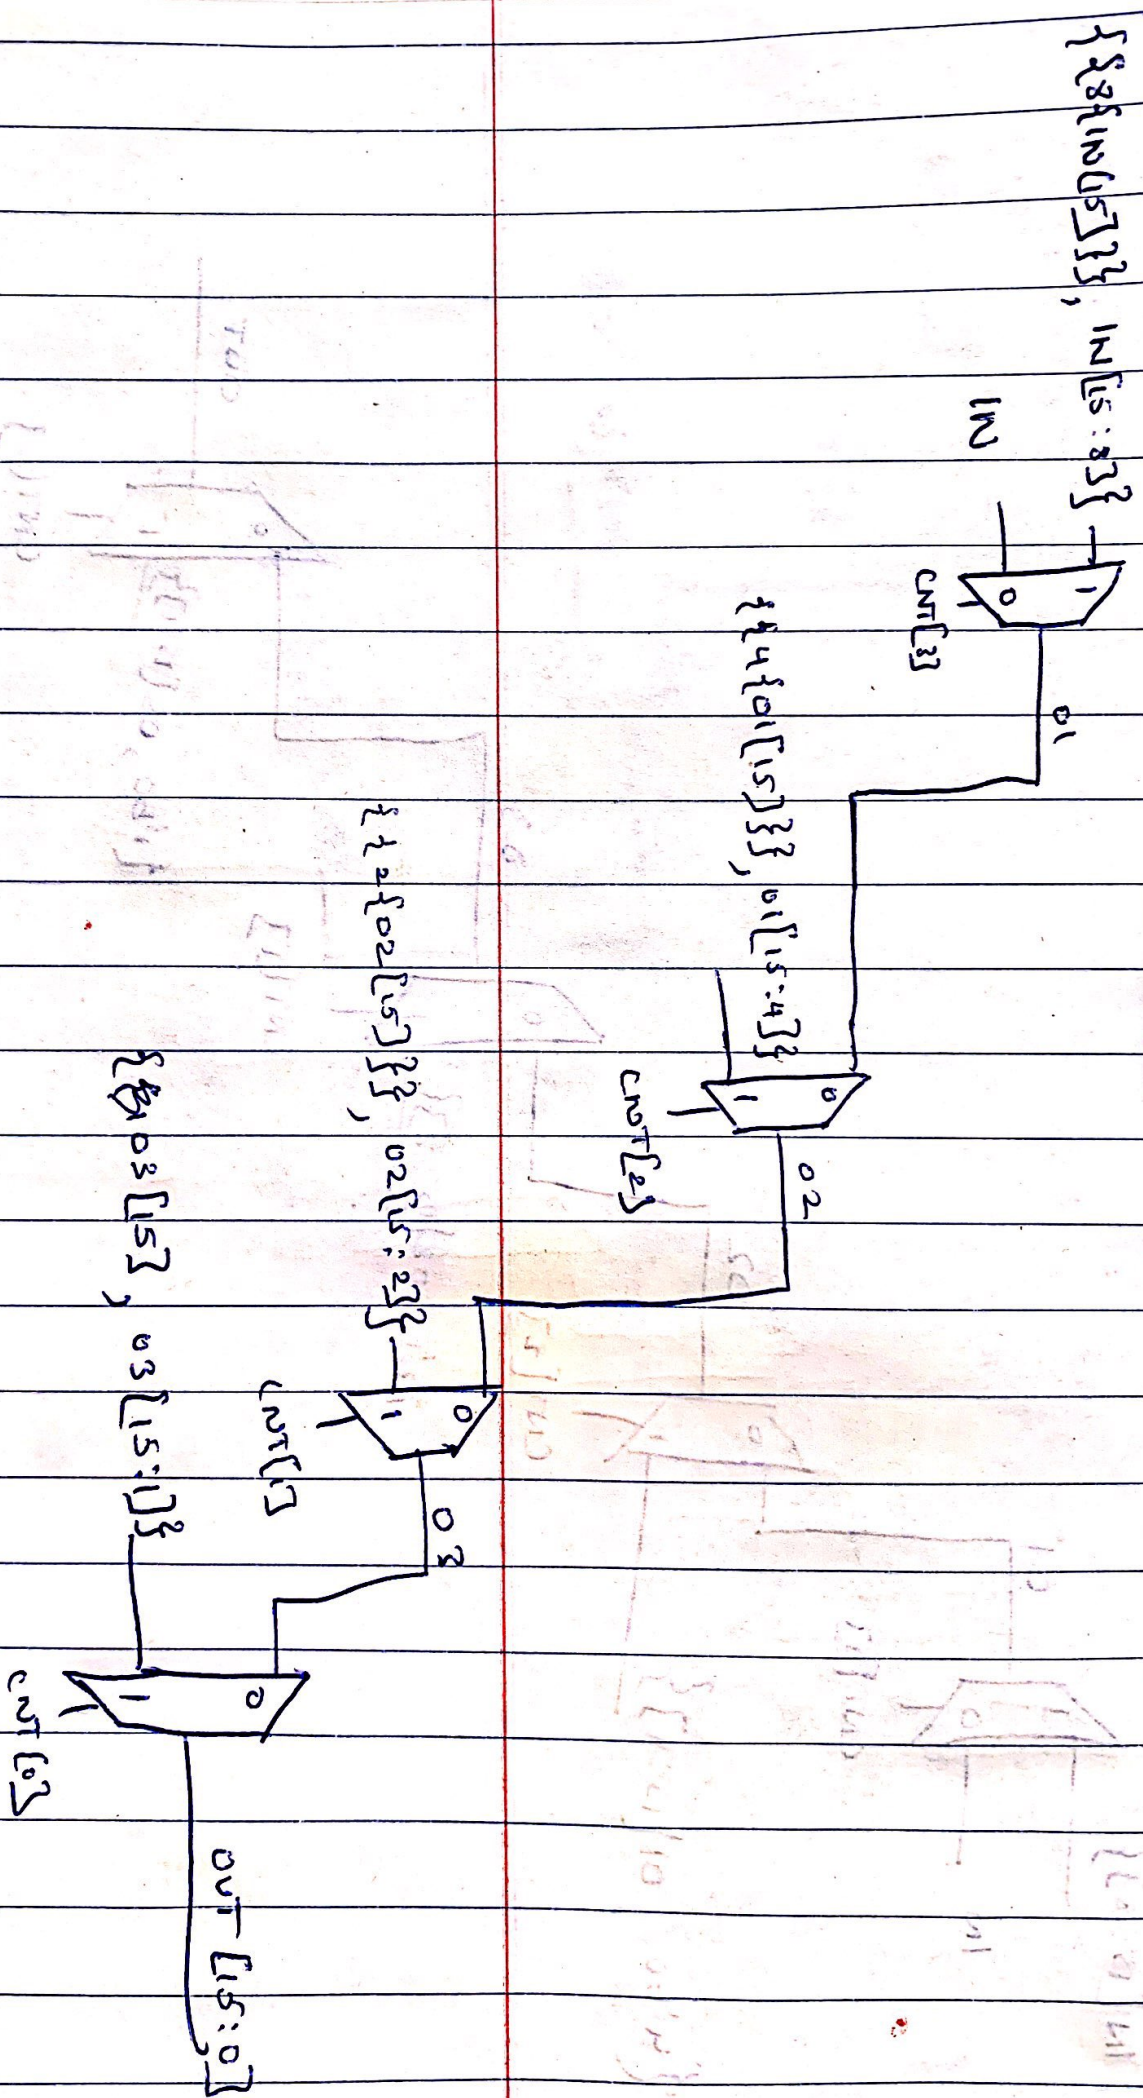 {{8{IN[15]}}, IN[15:8]}
IN
1
0
CNT[3]
01
{{4{01[15]}}, 01[15:4]}
0
1
CNT[2]
02
{{2{02[15]}}, 02[15:2]}
0
1
CNT[1]
03
03[15], 03[15:1]}
0
1
CNT[0]
OUT [15:0]